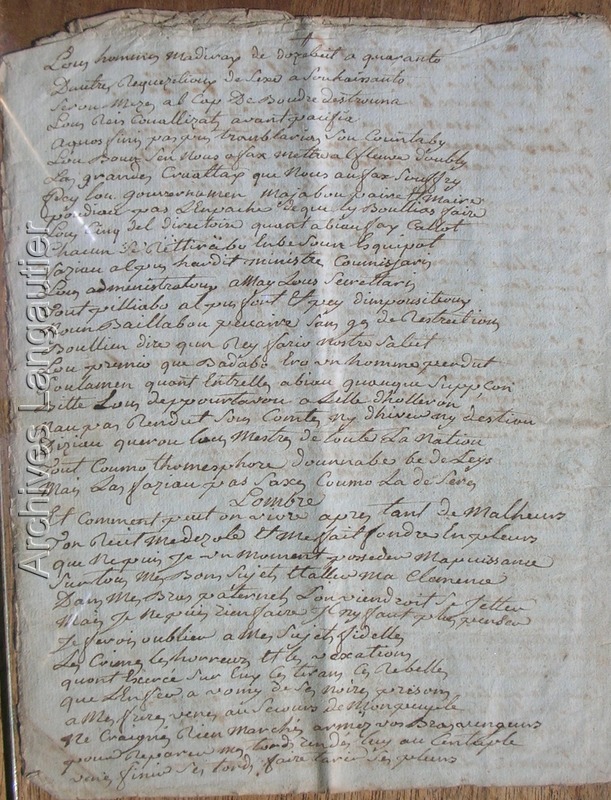 Lous hommes Madurax de dozebeit a quaranto
Dautres Requezetious de Sexe a Souhaixanto
Serou Mezes al Cap De Boudre destrouna
Lous Reis Couallizats avant pacifia
aquos fini pas pus troublarias Sou Countaby
Lou Boun Sen Nous a fax Mettre a fleuve doubly
Las grandes Cruattax que Nous an fax Souffry
Pey lou gouvernomen Majabou paire Maire
poudiau pas L'Enpacha de que ly Boullias faire
Lous Cinq del directoire quant abiau fax Callot
Chacun Se Rettirabo Enbe Soun Equipat
faziau al pus hardit ministre Coumissaris
Lous administratous a May Lous Secrettaris
tout pilliabo al pus fort Et pey dimpousitious
Soun Baillabou pecaire Sans ges de Restrictious
Boullien dire quun Rey fario nostre Salut
Lou premio que Badabo Ero un homme perdut
Soulamen quant Entrelles abiau quauque Supçon
Vitte Lous depourtavou a Lille dholleron
an pas Rendut Sous Comtes ny dhiver ny destiou
Diziau querou lous Mestres de toute La Nation
tout Coumo thomesphore dounnabe be de Leys
Mais Las faziau pas Saxes Coumo La de Seres
Lombre
Et Comment peut on vivre apres tant de Malheurs
Ton Recit Me dezole Et Me fait fondre En pleurs
que Ne puis Je un Moment posseder Ma puissance
Sur tous Mes Bons Sujets Etaller Ma Clemence
Dans Mes Bras paternels Lon viendroit Se Jetter
Mais Je Ne puis rien faire Il Ny faut plus penser
Je ferois oublier a Mes Sujets fidelles
Les Crimes les horreurs Et les vexations
quont Exercé Sur Eux les tirans Ces Rebelles
que L'Enfer a vomy de Ses Noires prisons
a Mes freres venes au Secours de Mon peuple
Ne Craignes Rien Marchés armez vos Bras vengeurs
pour Reparer Mes tords rendes Luy au Centuple
venes finir Ses tords faire tarir Ses pleurs
Archives Langautier